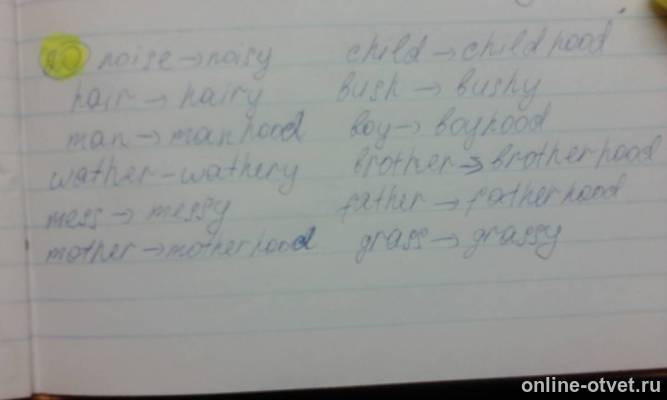 10 noise → noisy child → childhood
hair → hairy bush → bushy
man → manhood boy → boyhood
wather - wathery brother → brotherhood
mess → messy father → fatherhood
mother → motherhood grass → grassy
online-otvet.ru